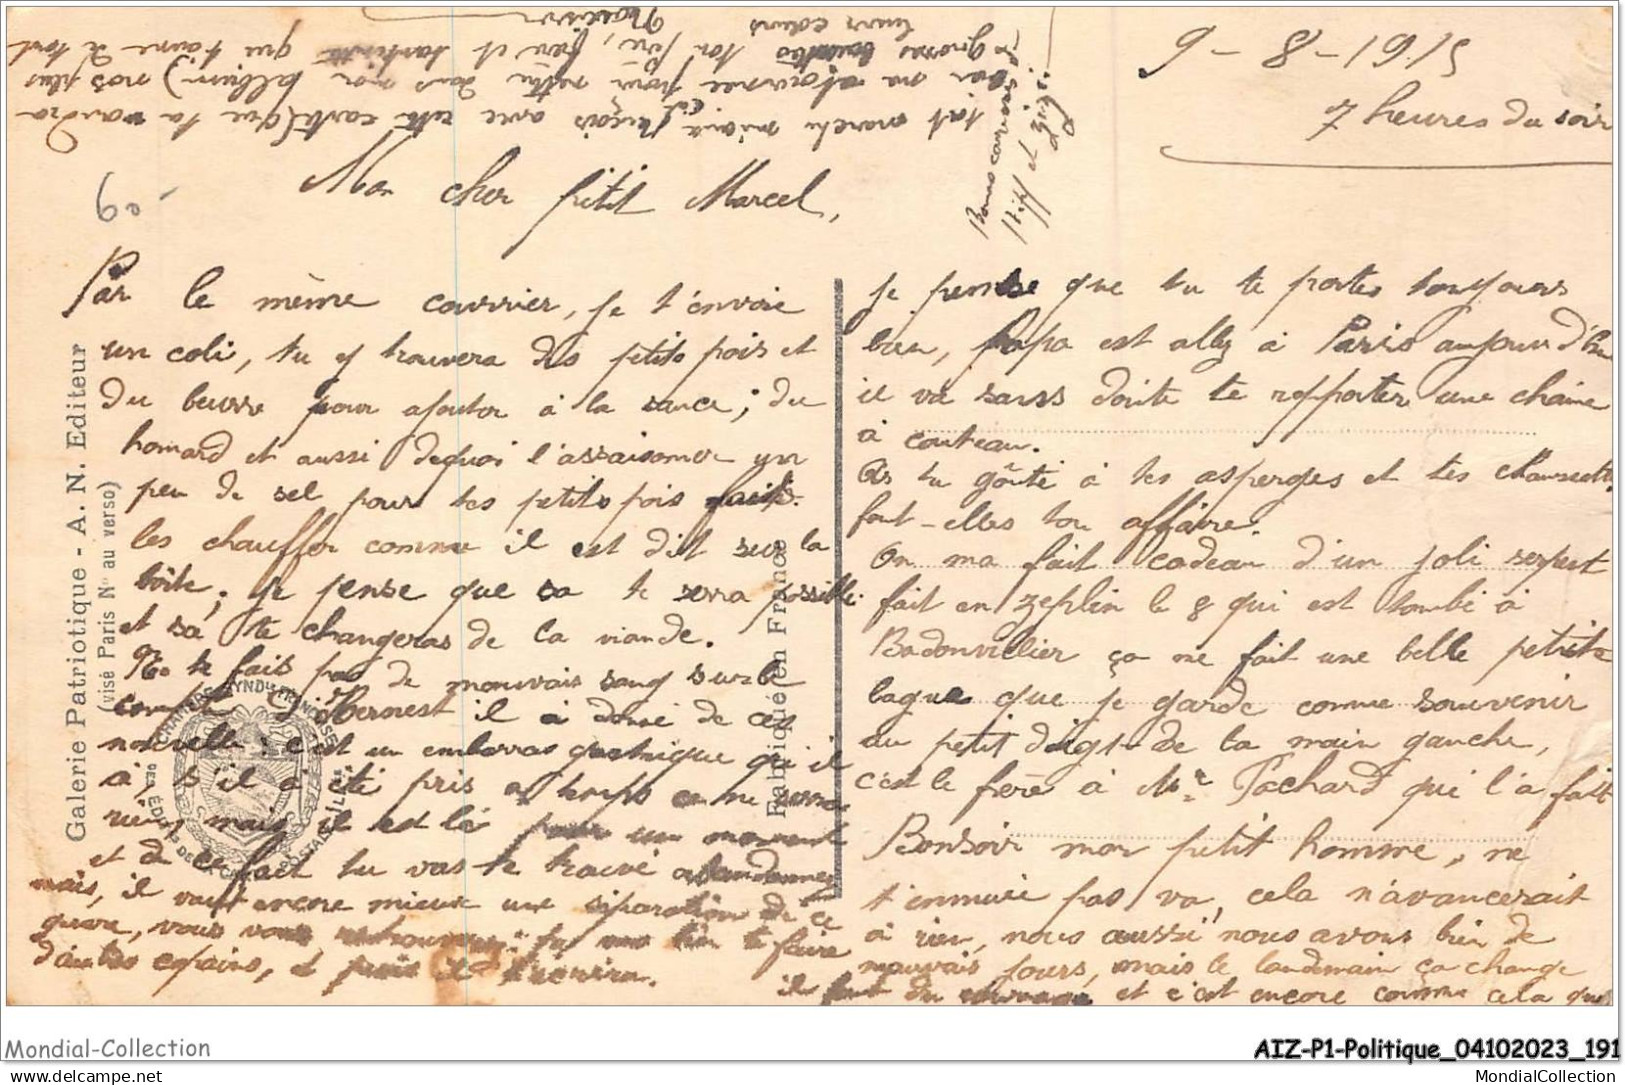 9-8-1915
7 heures du soir
Mon cher petit Marcel,
Par le même courrier, je t'envoie
un coli, tu y trouvera des petits pois et
du beurre pour ajouter à la sauce; du
homard et aussi dequoi l'assaisonner un
peu de sel pour tes petits pois fais-
les chauffer comme il est dit sur la
boîte; je pense que sa te sera possible
et sa te changeras de la viande.
Ne te fais pas de mauvais sang sur le
compte d'Hernest il a donné de ces
nouvelle: c'est un embarras gastrique qu'il
a, s'il a été pris a temps ce ne serra
rien, mais il est là pour un moment
et de ce fait tu vas te trouvé abandonner
mais, il vaut encore mieux une séparation de ce
genre, vous vous retrouverez: tu vas bien te faire
d'autres copains, et puis il t'ecrira.
je pense que tu te portes toujours
bien, Papa est allez à Paris aujourd'hui
il va sans doute te rapporter une chaîne
à couteau.
As tu goûté à tes asperges et tes chaussettes
font-elles ton affaire.
On ma fait cadeau d'un joli serpent
fait en zeplin le 8 qui est tombé à
Badonvillier ça me fait une belle petite
bague que je garde comme souvenir
au petit doigt de la main gauche,
c'est le frère à Mr Pachard qui l'a fait
Bonsoir mon petit homme, ne
t'ennuie pas va, cela n'avancerait
à rien, nous aussi nous avons bien de
mauvais jours, mais le landemain ça change
il faut du courage et c'est encore comme cela que
tat marchi mieux reçois avec cette carte (que tu voudra
bien me retourner pour mettre dans mon album) nos plus
grosses ton père, fier et qui t'aime de tout
leurs cœurs
Bonnes caresses
et Zizi
Galerie Patriotique - A. N. Editeur
(visé Paris N° au verso)
Fabriqué en France
CHAMBRE SYNDle FRANÇAISE DES EDITrs DE CARTES POSTALES ILLées
60
Mondial-Collection
AIZ-P1-Politique_04102023_191
delcampe.net
MondialCollection